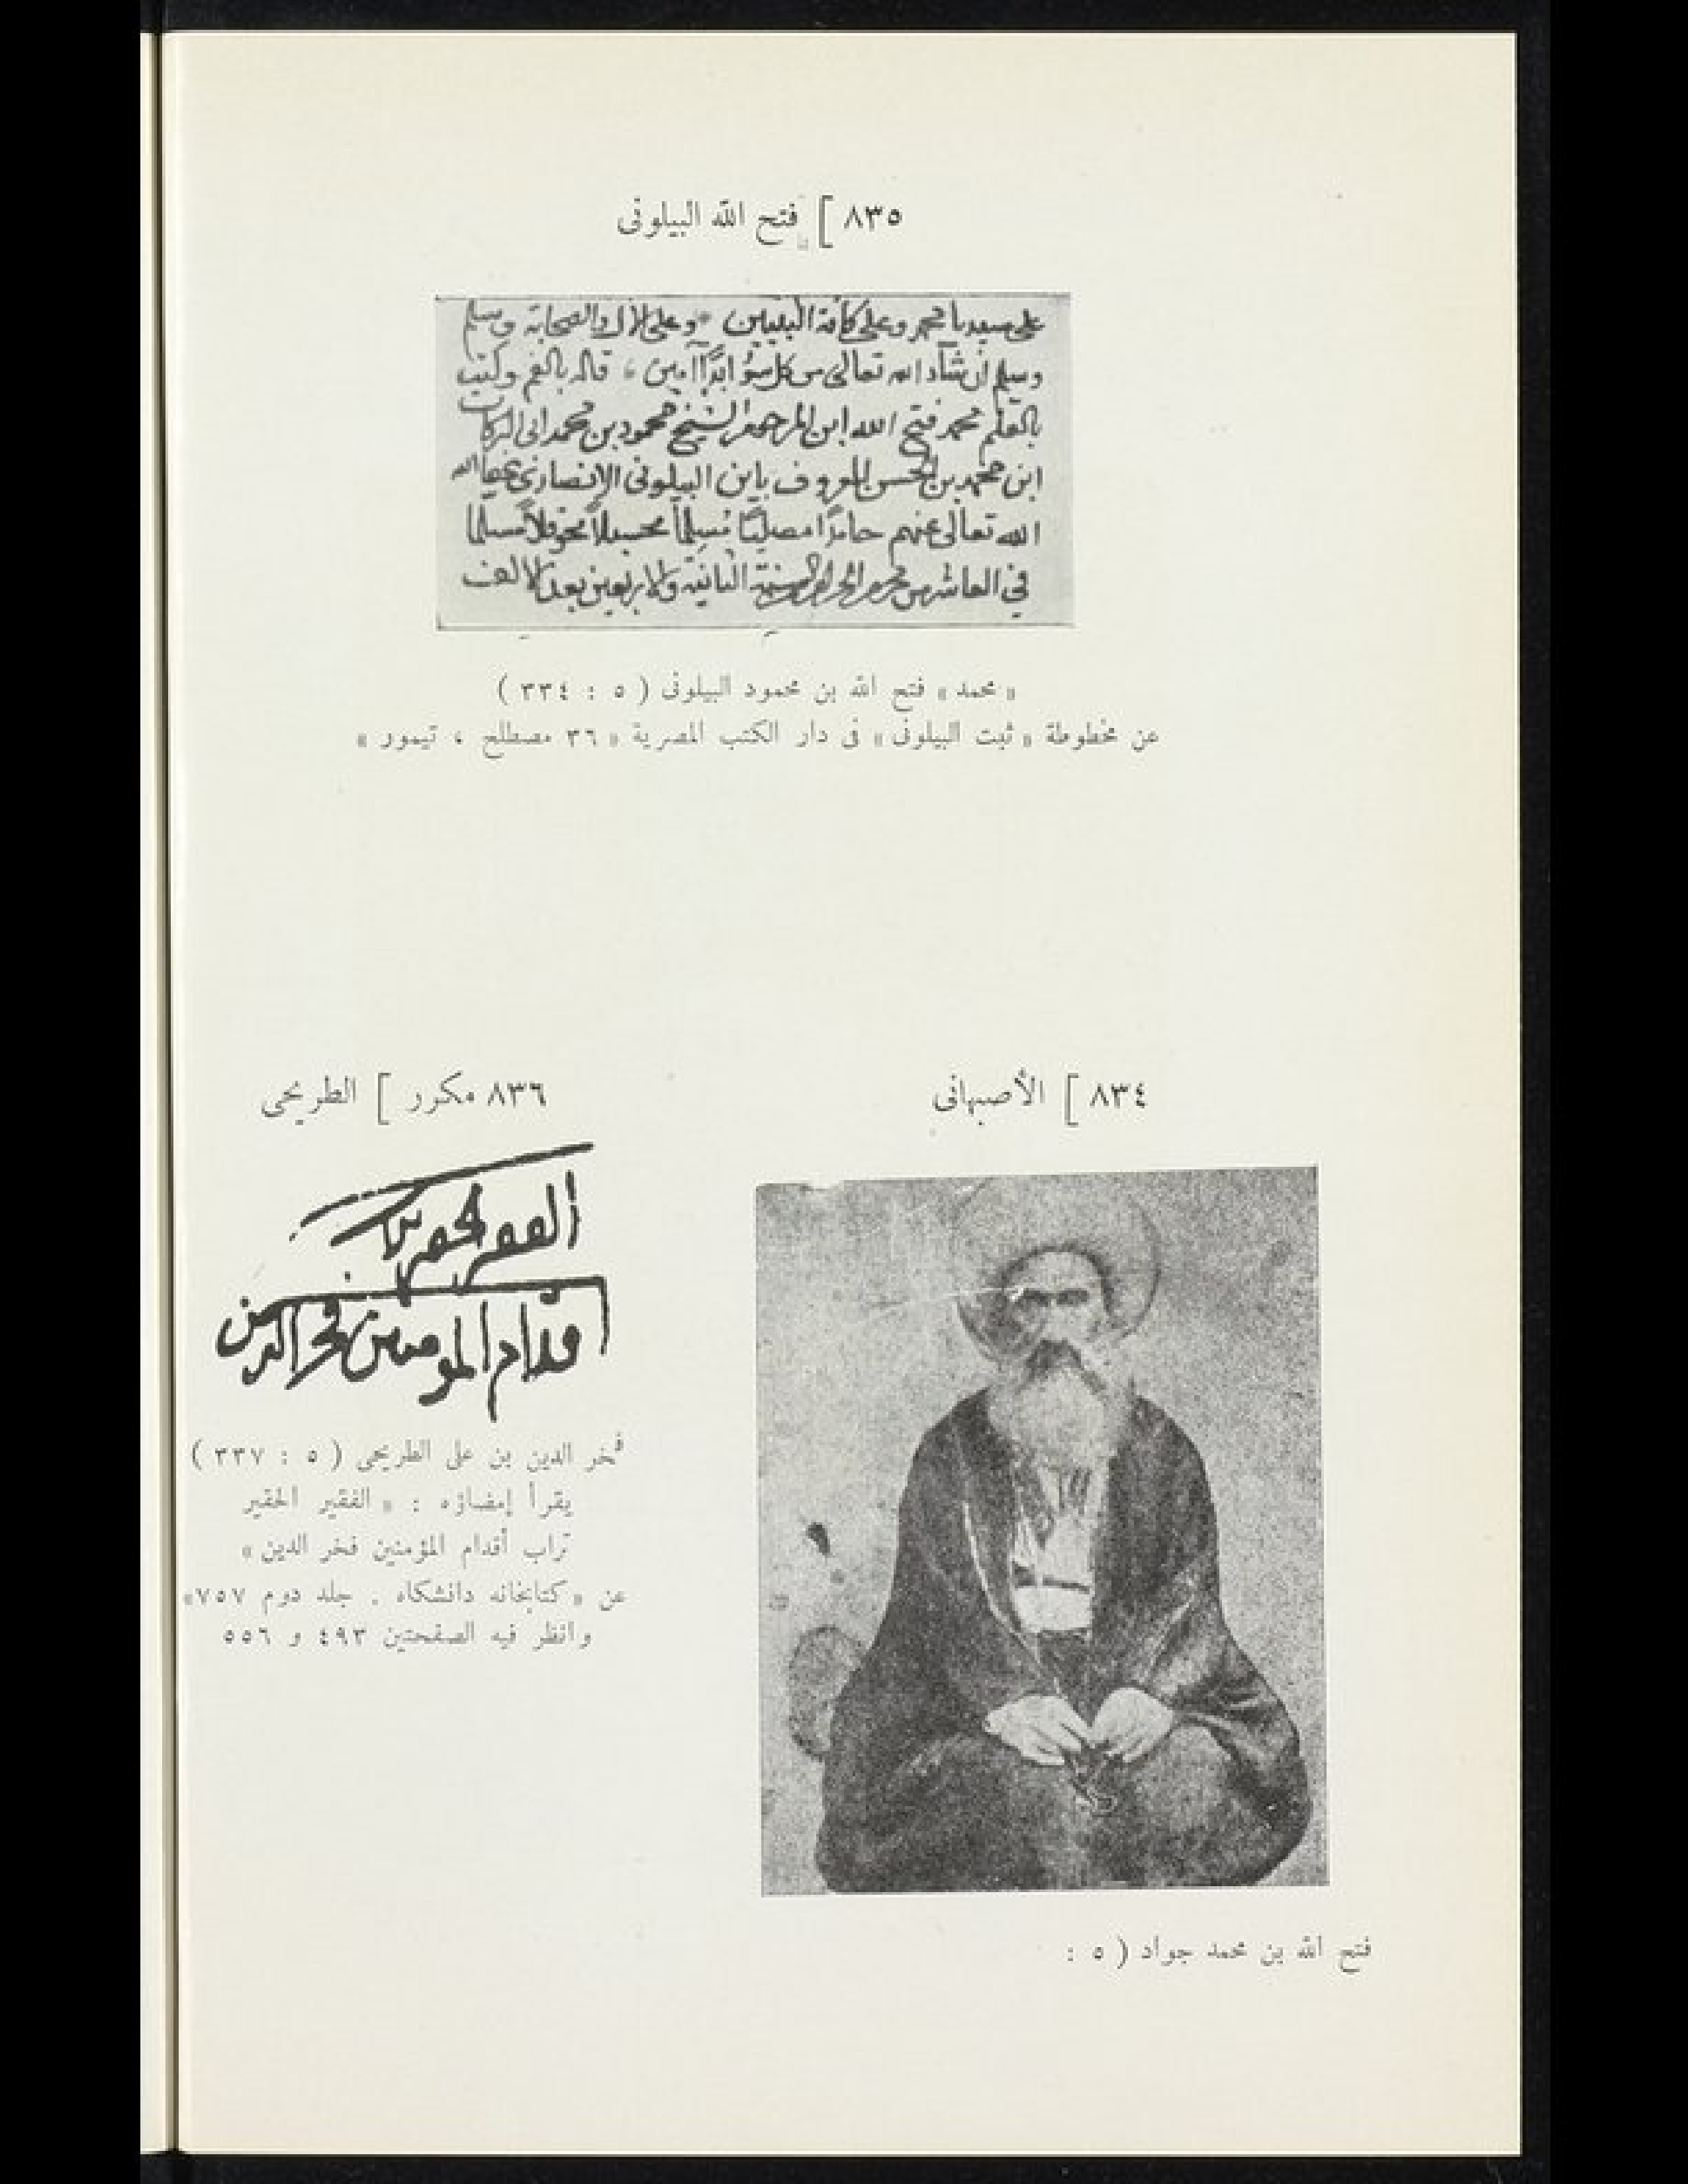 ٨٣٥ ] فتح الله البيلونى
على سيدنا محمد وعلى كافة النبيين وعلى الآل والصحابة وسلم
وسلم ان شاء الله تعالى من كل سوء ابدًا آمين قاله بالفم وكتبه
بالقلم محمد فتح الله ابن المرحوم الشيخ محمود بن محمد ابى البركات
ابن محمد بن الحسن المعروف بابن البيلونى الانصارى عفا الله
الله تعالى عنهم حامدًا مصليًا مسلمًا محسبلًا محوقلًا مسلما
في العاشر من محرم الحرام السنة الثانية والاربعين بعد الالف
« محمد » فتح الله بن محمود البيلونى ( ٥ : ٣٣٤ )
عن مخطوطة « ثبت البيلونى » فى دار الكتب المصرية « ٣٦ مصطلح ، تيمور »
٨٣٤ ] الأصبهانى
فتح الله بن محمد جواد ( ٥ :
٨٣٦ مكرر ] الطريحى
الفقير الحقير تراب
اقدام المومنين فخر الدين
فخر الدين بن على الطريحى ( ٥ : ٣٣٧ )
يقرأ إمضاؤه : « الفقير الحقير
تراب أقدام المؤمنين فخر الدين »
عن « كتابخانه دانشكاه . جلد دوم ٧٥٧»
وانظر فيه الصفحتين ٤٩٣ و ٥٥٦